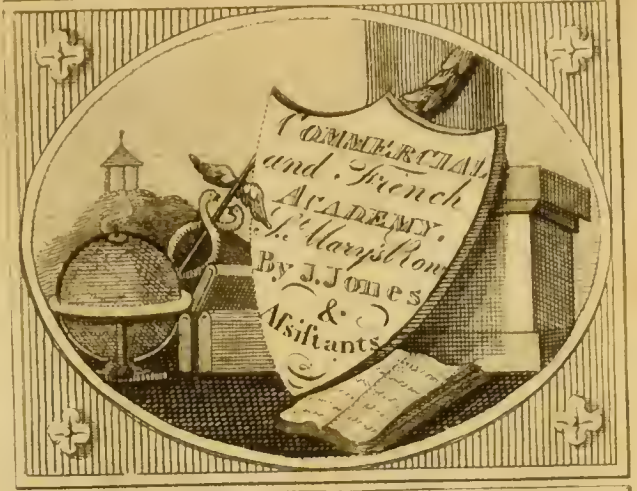 COMMERCIAL
and French
ACADEMY.
St. Mary's Row
By J. Jones
&
Aſsiſtants